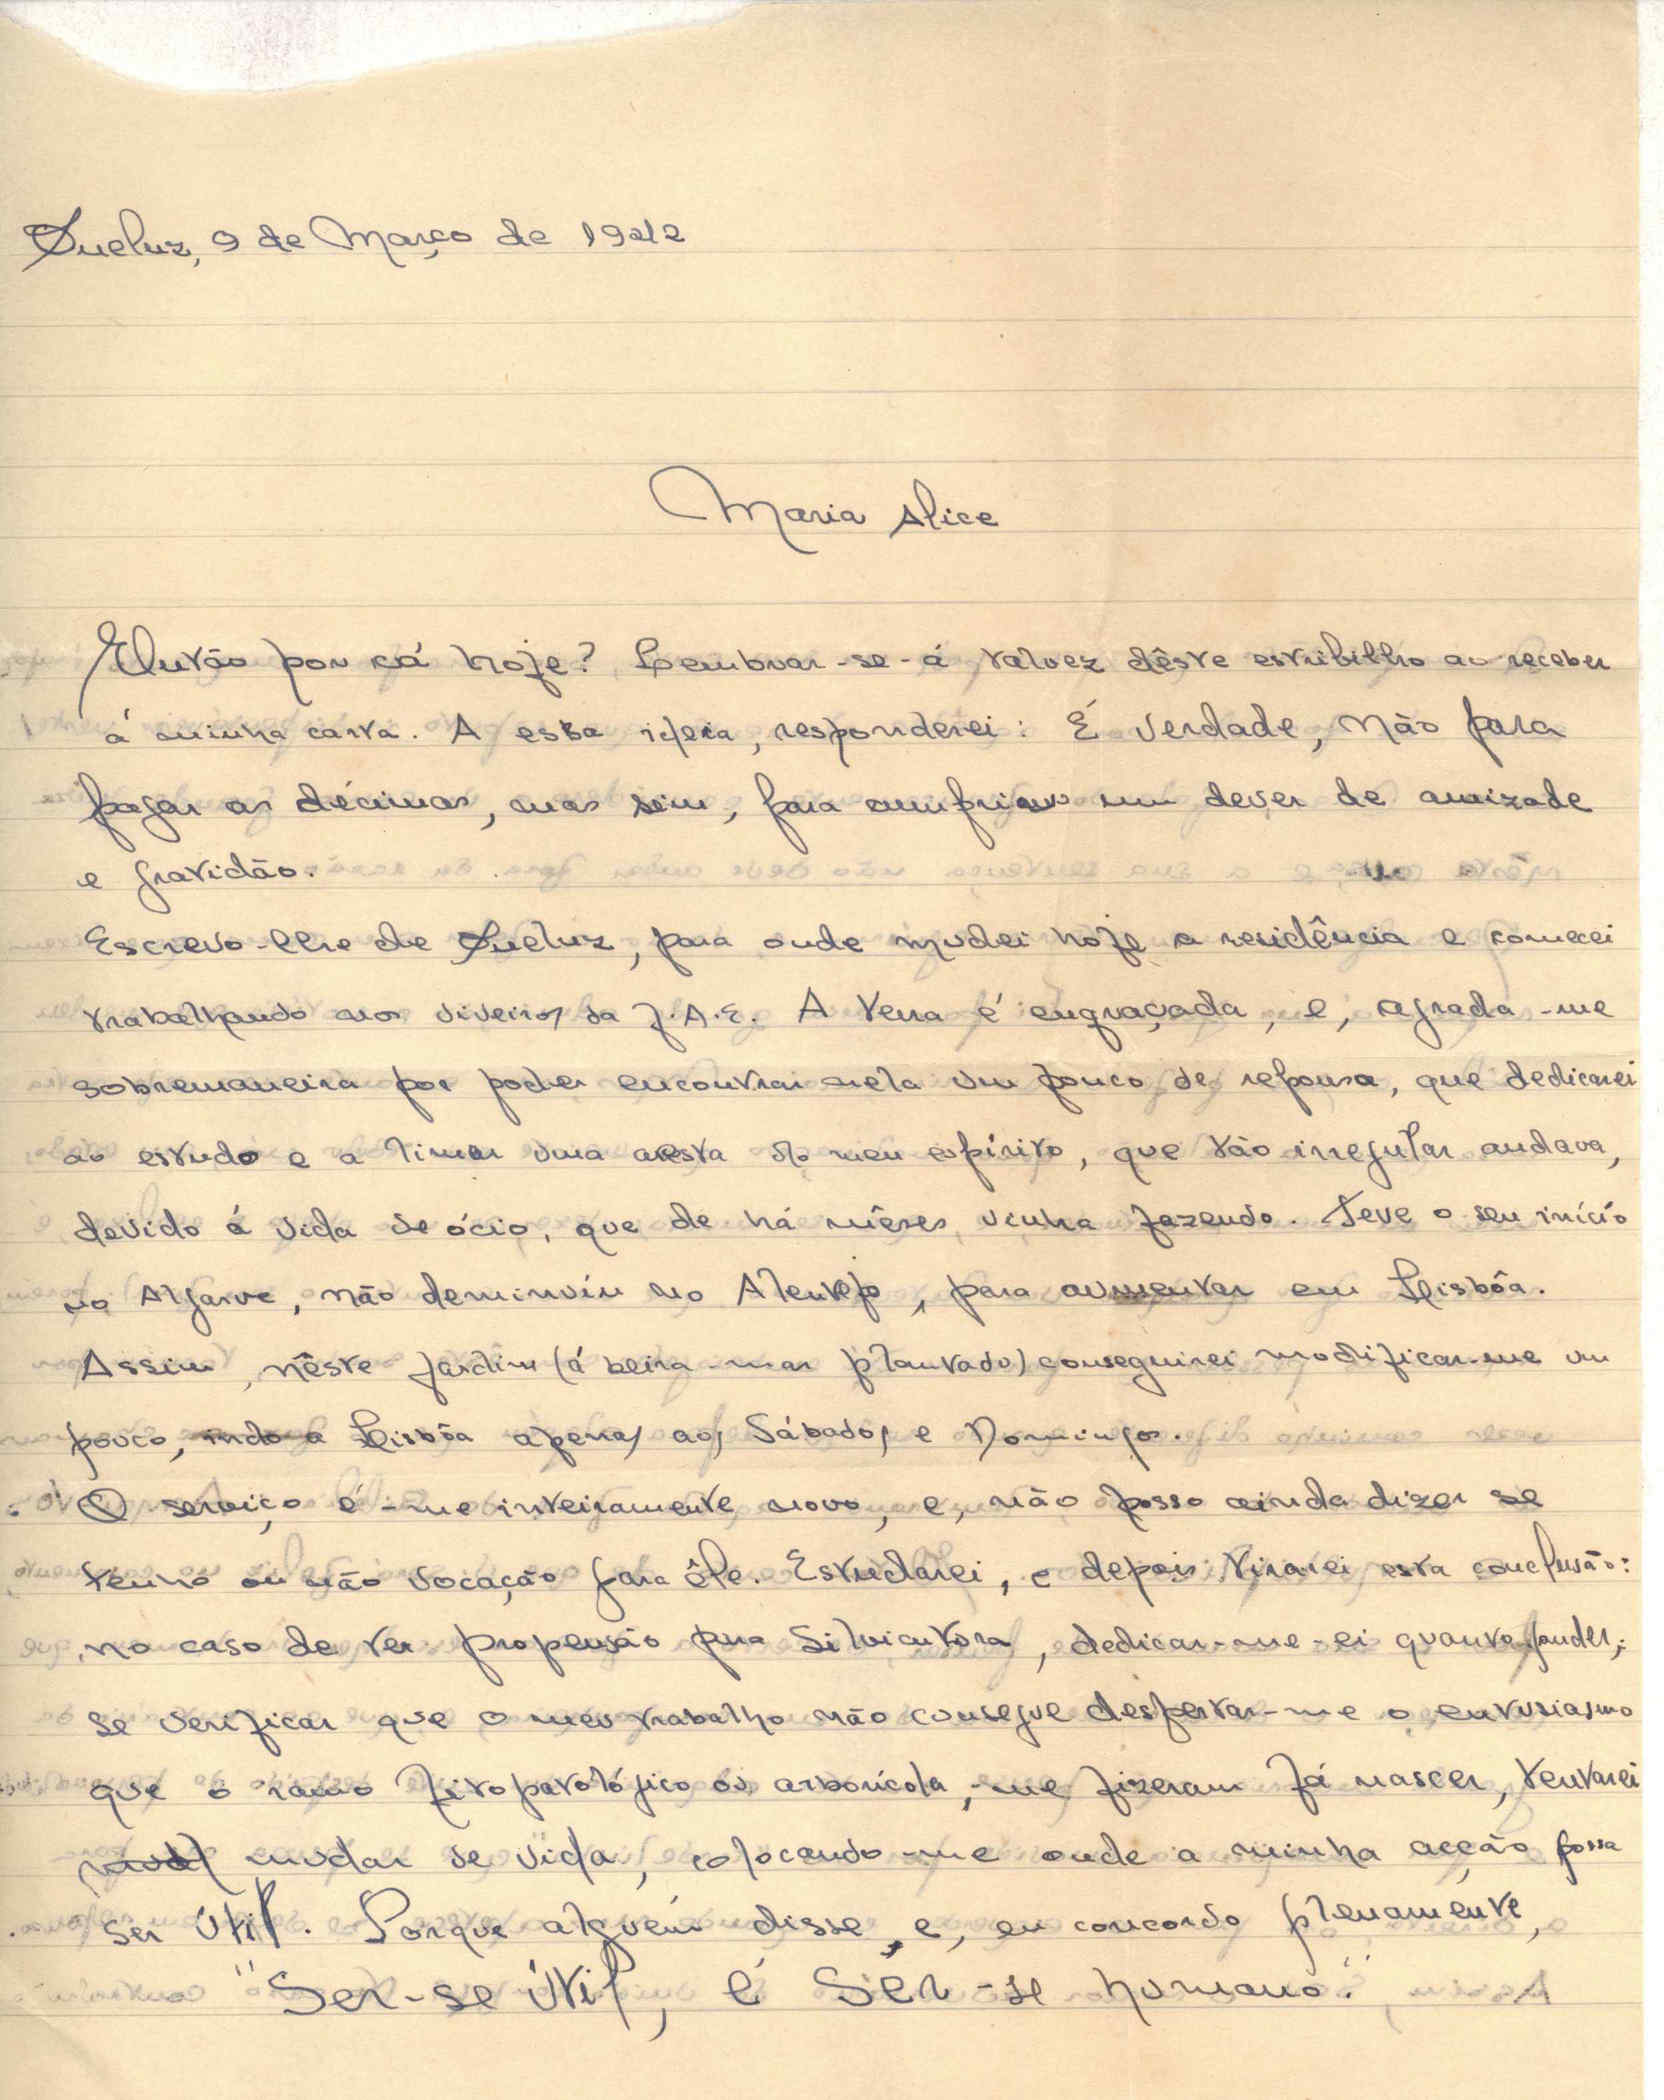 Queluz, 9 de Março de 1942
Maria Alice
Então por cá hoje? Lembrar-se-á talvez dêste estribilho ao receber
á minha carta. A essa ideia, responderei: É verdade, não para
pagar as décimas, mas sim, para cumprir um dever de amizade
e gratidão.
Escrevo-lhe de Queluz, para onde mudei hoje a residência e comecei
trabalhando nos viveiros da J.A.E. A terra é engraçada, e, agrada-me
sobremaneira por poder encontrar nela um pouco de repouso, que dedicarei
ao estudo e a limar uma aresta do meu espírito, que tão irregular andava,
devido á vida de ócio, que de há mêses vinha fazendo. Teve o seu início
no Algarve, não deminuíu no Alentejo, para aumentar em Lisbôa.
Assim, nêste jardim (á beira-mar plantado) conseguirei modificar-me um
pouco, indo a Lisbôa apenas aos Sábados e Domingos.
O serviço é-me inteiramente novo, e, não posso ainda dizer se
tenho ou não vocação para êle. Estudarei, e depois tirarei esta conclusão:
no caso de ter propensão pra Silvicutura, dedicar-me-ei quanto puder;
se verificar que o meu trabalho não consegue despertar-me o entusiasmo
que o ramo fitopatológico ou arborícola, me fizeram já nascer, tentarei
mudar de vida, colocando-me onde a minha acção possa
ser útil. Porque alguém disse, e, eu concordo plenamente,
"Ser-se útil, é Sêr-se humano".